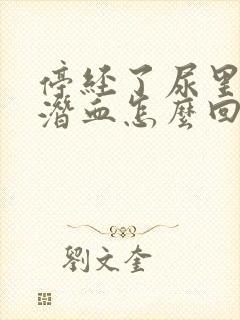 停経了尿里
潛血怎麼回
劉文奎